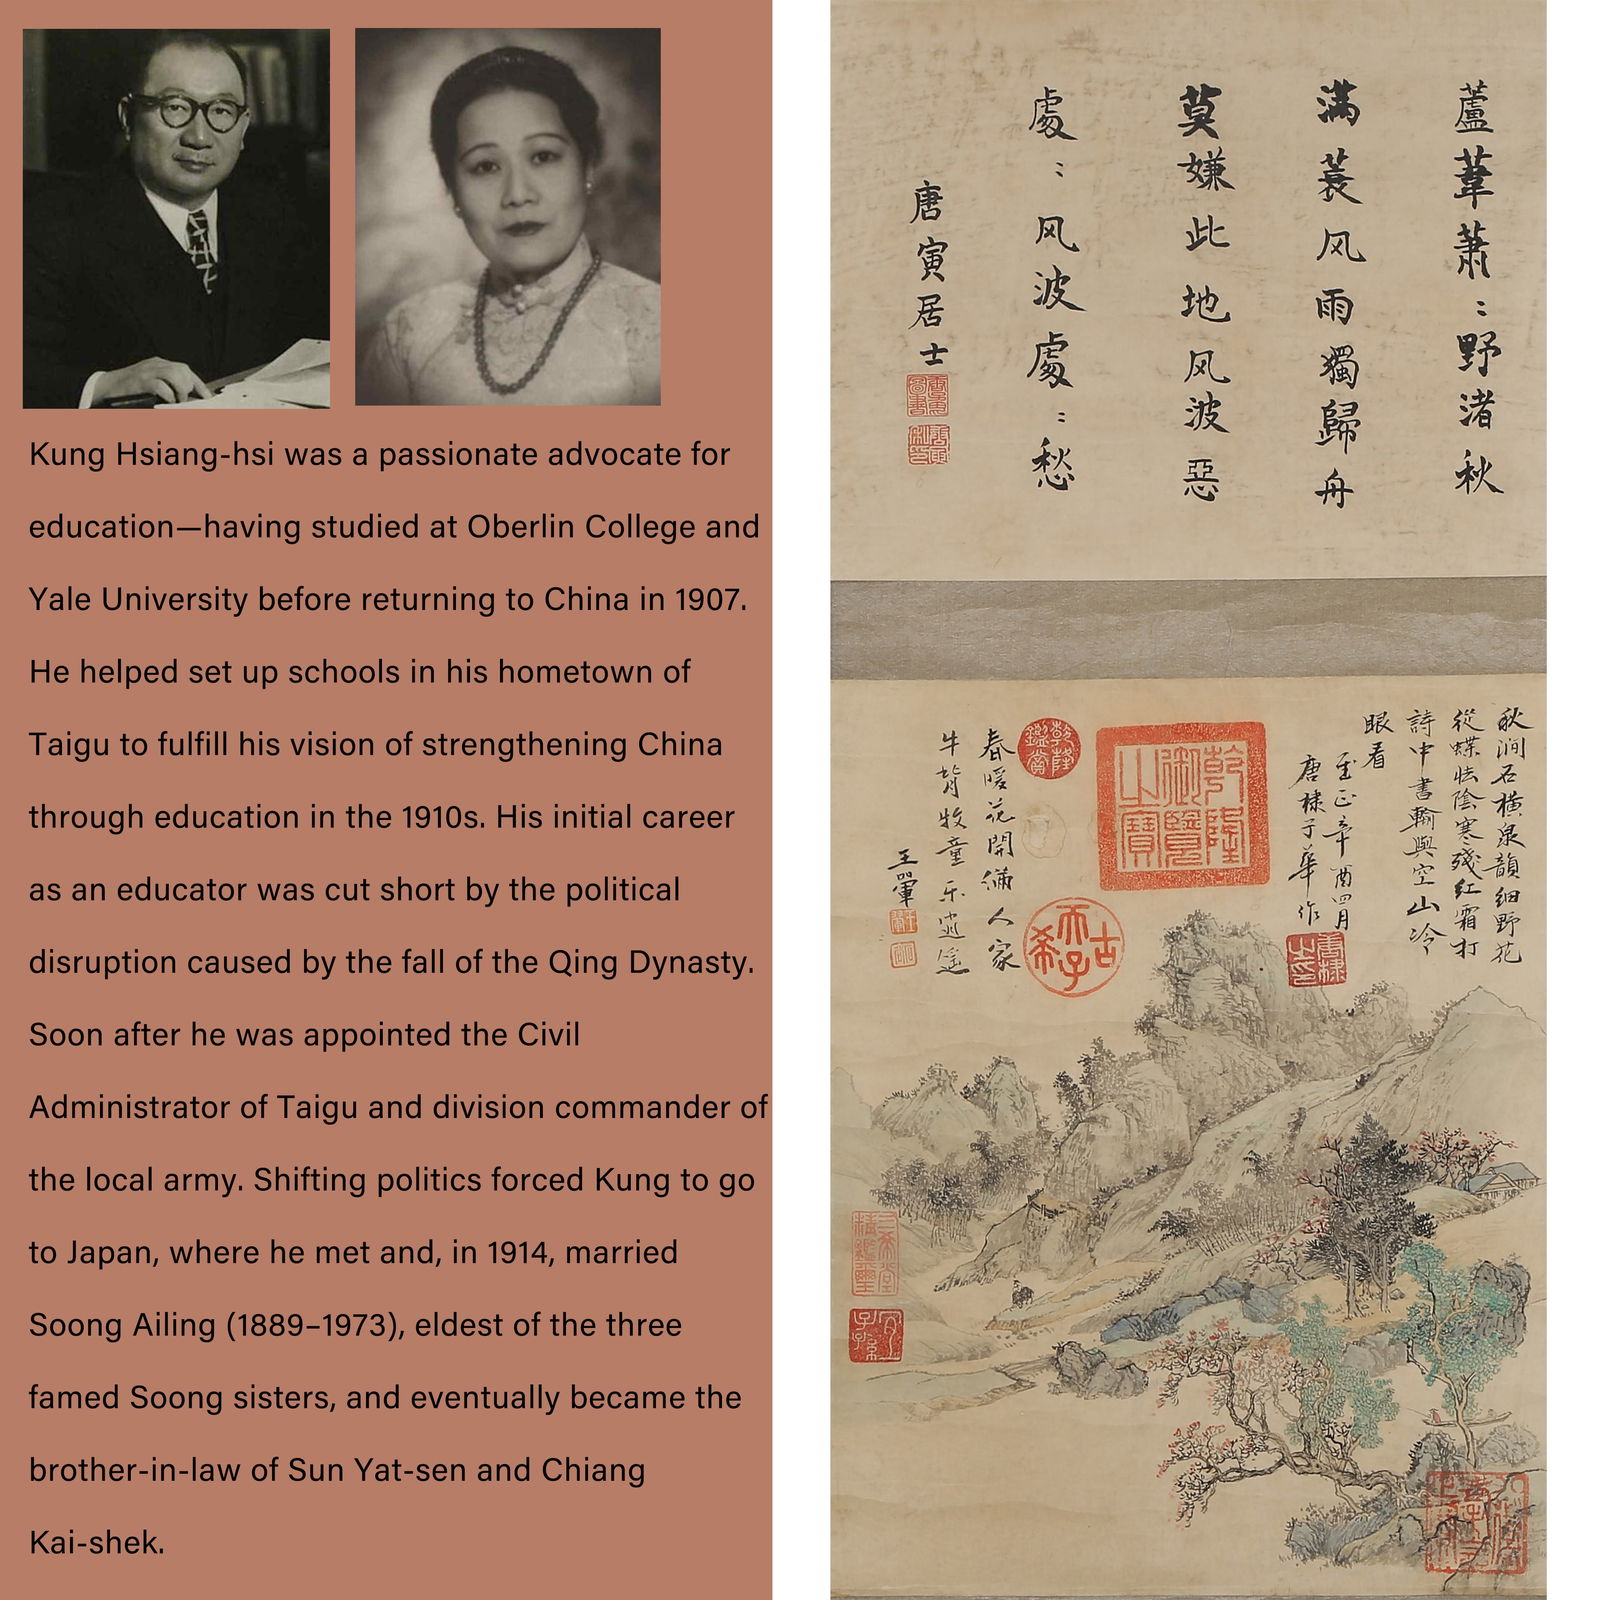 Kung Hsiang-hsi was a passionate advocate for
education—having studied at Oberlin College and
Yale University before returning to China in 1907.
He helped set up schools in his hometown of
Taigu to fulfill his vision of strengthening China
through education in the 1910s. His initial career
as an educator was cut short by the political
disruption caused by the fall of the Qing Dynasty.
Soon after he was appointed the Civil
Administrator of Taigu and division commander of
the local army. Shifting politics forced Kung to go
to Japan, where he met and, in 1914, married
Soong Ailing (1889–1973), eldest of the three
famed Soong sisters, and eventually became the
brother-in-law of Sun Yat-sen and Chiang
Kai-shek.
蘆葦蕭：野渚秋
滿蓑风雨獨歸舟
莫嫌此地风波惡
處：风波處：愁
唐寅居士
秋澗石橫泉韻細野花
從蝶怯陰寒殘紅霜打
詩中書輸與空山冷
眼看
至正辛酉四月
唐棣子華作
乾隆御覽之寶
乾隆鑑賞
古希天子
春暖花開滿人家
牛背牧童乐逍遥
王翬
唐棣之印
三希堂精鑑璽
宜子孫